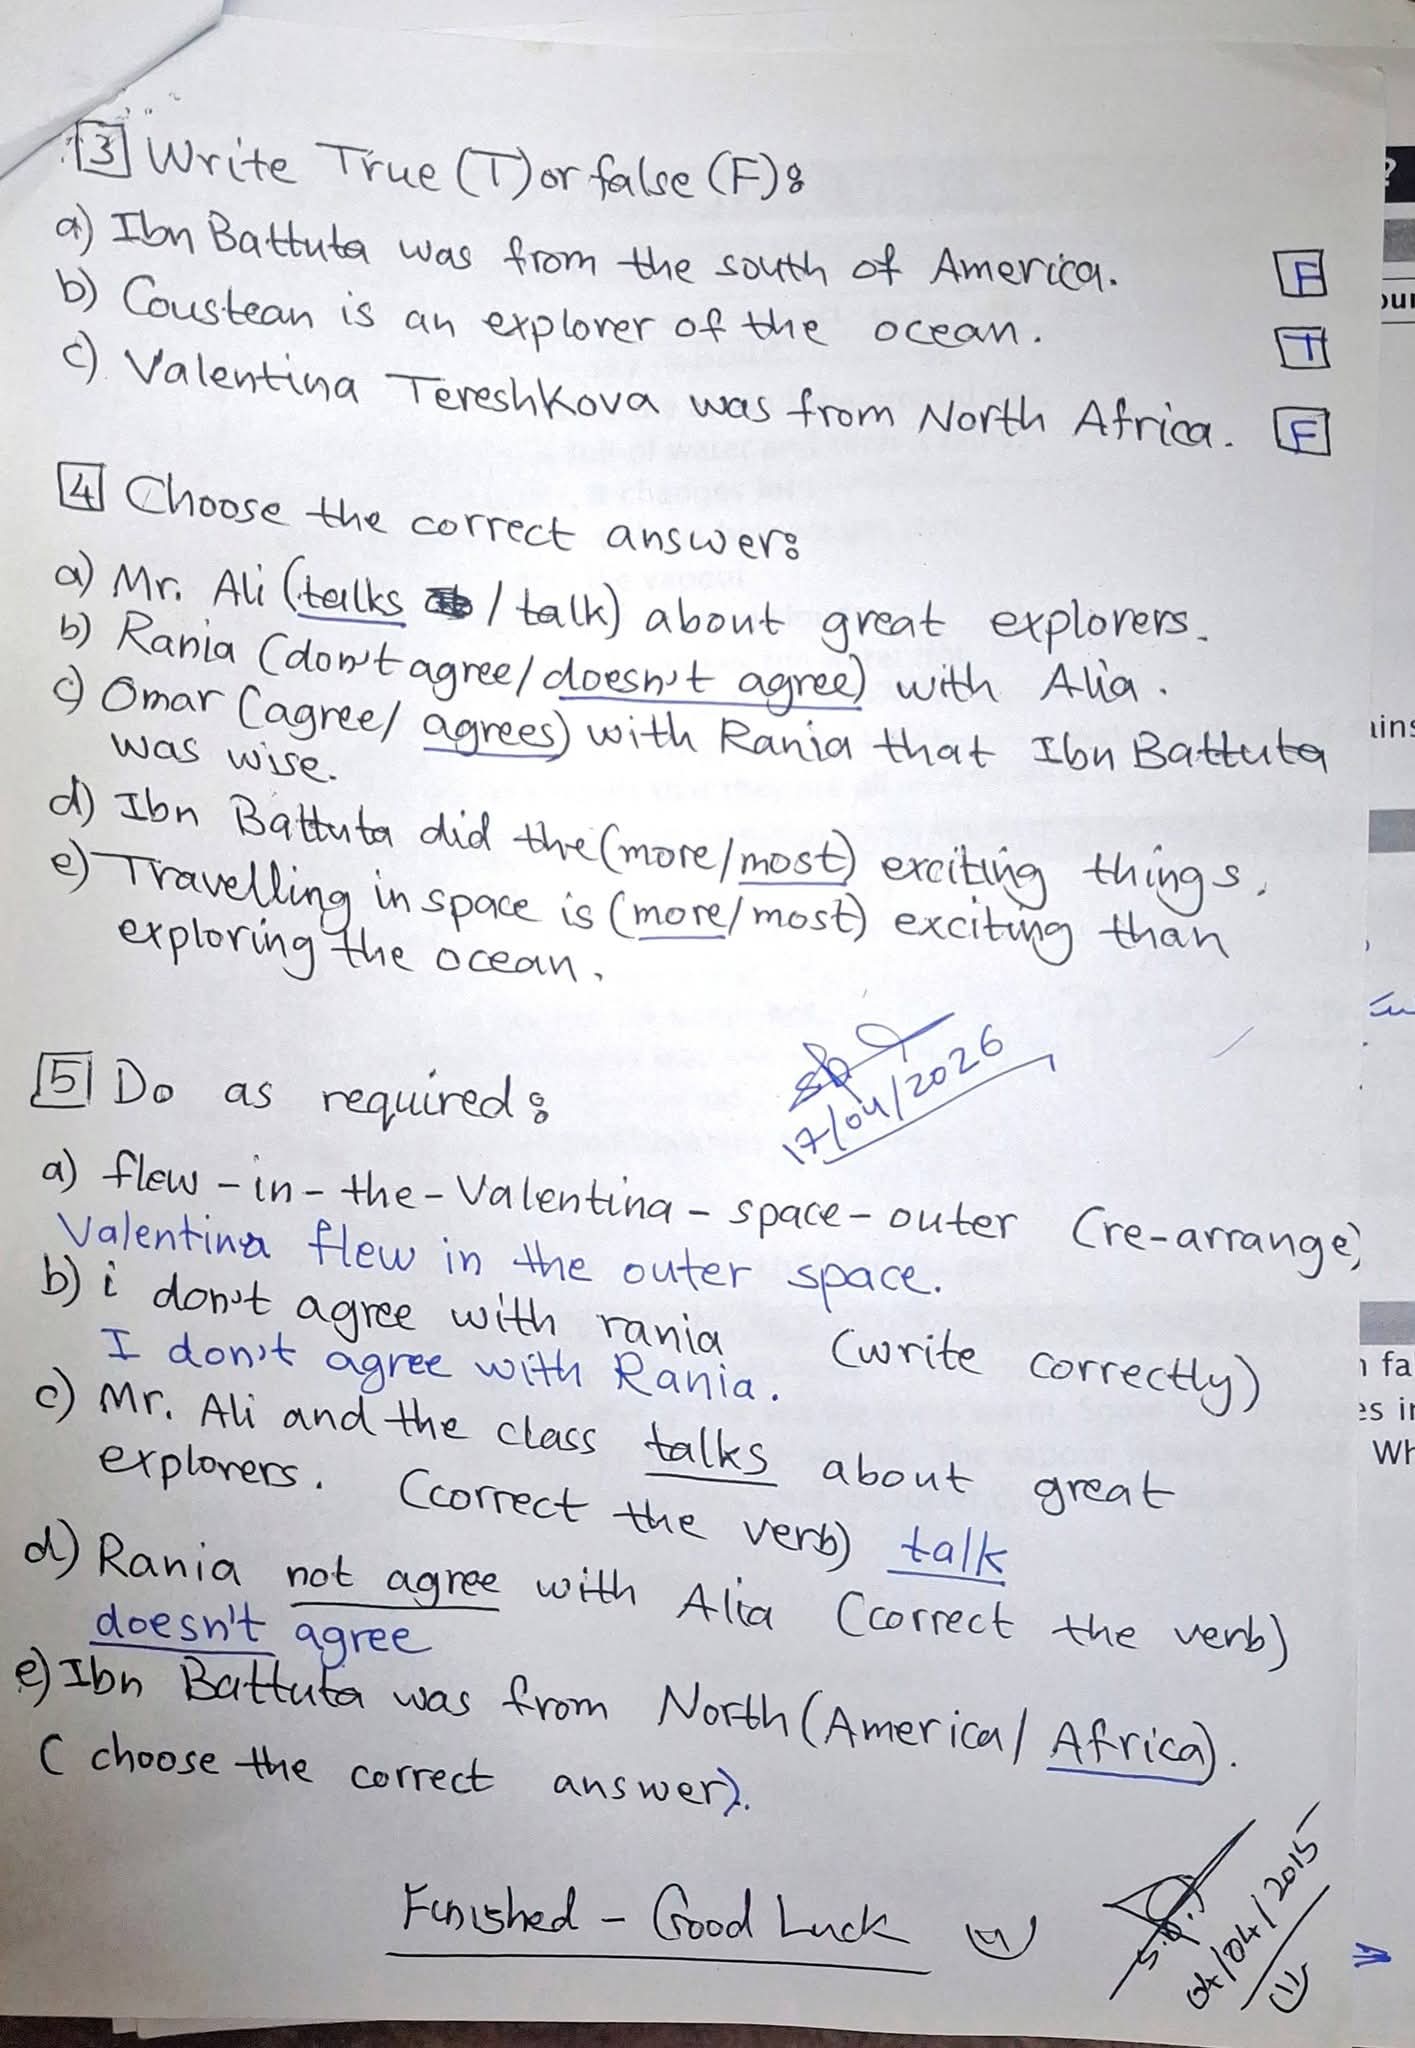 3 Write True (T) or false (F):
a) Ibn Battuta was from the south of America. F
b) Coustean is an explorer of the ocean. T
c) Valentina Tereshkova was from North Africa. F
4 Choose the correct answer:
a) Mr. Ali (talks / talk) about great explorers.
b) Rania (don't agree/ doesn't agree) with Alia.
c) Omar (agree/ agrees) with Rania that Ibn Battuta
was wise.
d) Ibn Battuta did the (more/most) exciting things.
e) Travelling in space is (more/most) exciting than
exploring the ocean.
17/04/2026
5 Do as required:
a) flew - in - the - Valentina - space - outer (re-arrange)
Valentina flew in the outer space.
b) i don't agree with rania (write correctly)
I don't agree with Rania.
c) Mr. Ali and the class talks about great
explorers. (correct the verb) talk
d) Rania not agree with Alia (correct the verb)
doesn't agree
e) Ibn Battuta was from North (America/ Africa).
(choose the correct answer).
Finished - Good Luck
04/04/2015
?
our
ains
n fa
es in
Wh